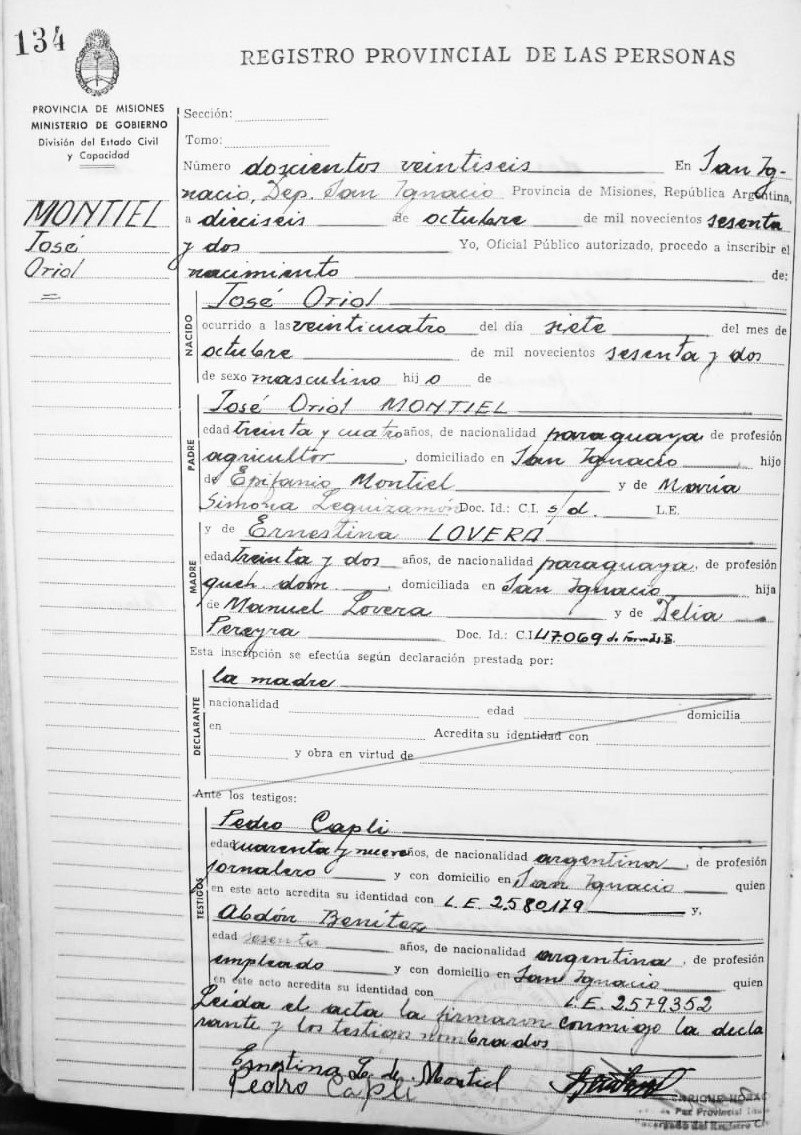 134
REGISTRO PROVINCIAL DE LAS PERSONAS
PROVINCIA DE MISIONES
MINISTERIO DE GOBIERNO
División del Estado Civil
y Capacidad
MONTIEL
José
Oriol
Sección:
Tomo:
Número doscientos veintiseis En San Ig-
nacio, Dep. San Ignacio Provincia de Misiones, República Argentina,
a dieciseis de octubre de mil novecientos sesenta
y dos Yo, Oficial Público autorizado, procedo a inscribir el
nacimiento de:
NACIDO
José Oriol
ocurrido a las veinticuatro del día siete del mes de
octubre de mil novecientos sesenta y dos
de sexo masculino hijo de
PADRE
José Oriol MONTIEL
edad treinta y cuatro años, de nacionalidad paraguaya de profesión
agricultor, domiciliado en San Ignacio hijo
de Epifanio Montiel y de María
Simona Leguizamón Doc. Id.: C.I. s/d. L.E.
y de Ernestina LOVERA
MADRE
edad treinta y dos años, de nacionalidad paraguaya, de profesión
queh. dom., domiciliada en San Ignacio hija
de Manuel Lovera y de Delia
Pereyra Doc. Id.: C.I. 47.069 de
Esta inscripción se efectúa según declaración prestada por:
DECLARANTE
la madre
nacionalidad edad domicilia
en Acredita su identidad con
y obra en virtud de
Ante los testigos:
TESTIGOS
Pedro Capli
edad cuarenta y nueve años, de nacionalidad argentina, de profesión
jornalero y con domicilio en San Ignacio quien
en este acto acredita su identidad con L.E. 2.580.179 y,
Abdón Benítez
edad sesenta años, de nacionalidad argentina, de profesión
empleado y con domicilio en San Ignacio quien
en este acto acredita su identidad con L.E. 2.579.352
Leída el acta la firmaron conmigo la decla
rante y los testigos nombrados
Ernestina L. de Montiel
Pedro Capli
ENRIQUE
de Paz Provincial
Encargado del Registro